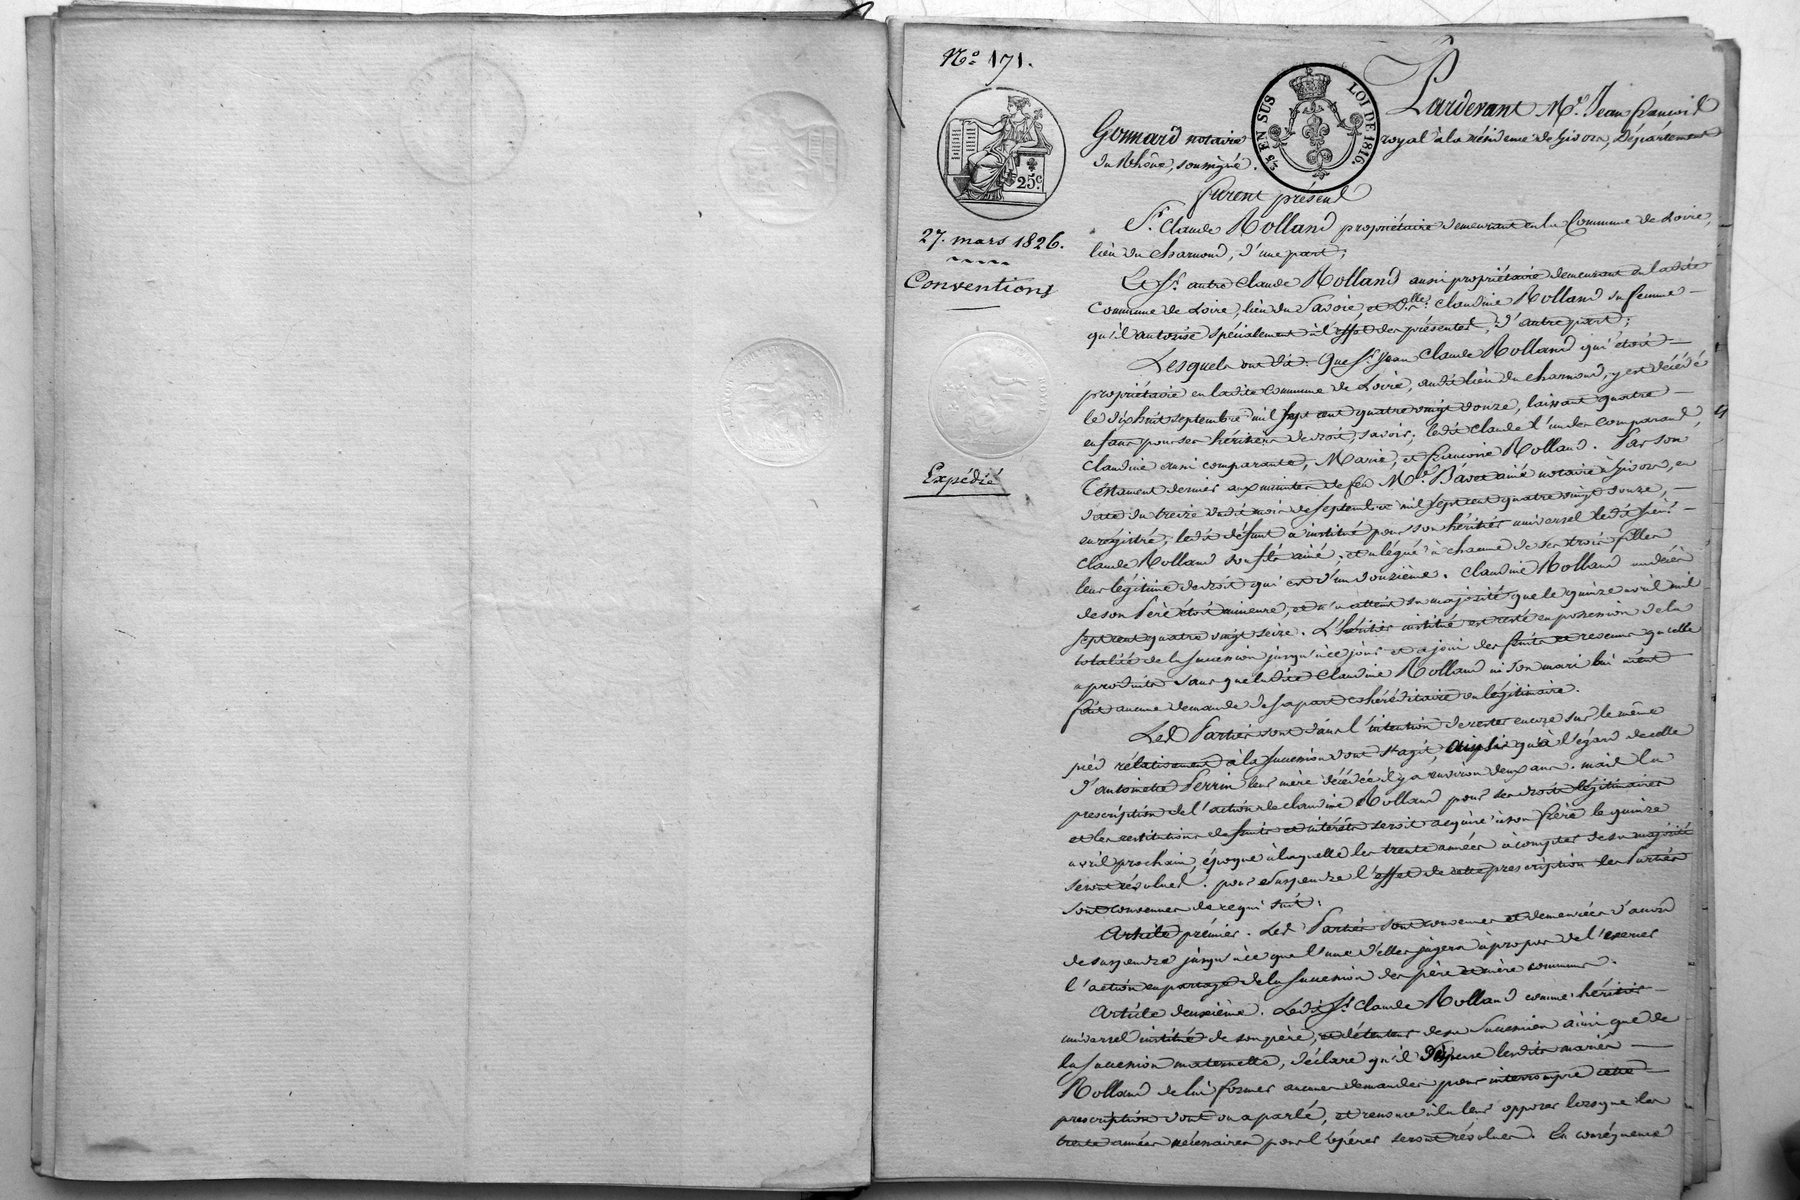 N.o 171.
25 EN SUS LOI DE 1816.
25.c
27. mars 1826.
Conventions
Expédié
Pardevant M.e Jean François
Gonnard notaire royal à la résidence de Givors, Département
du Rhône, soussigné.
furent présens
S.r Claude Rolland propriétaire demeurant en la Commune de Loire,
lieu du charmond, d'une part;
Le S.r autre Claude Rolland aussi propriétaire demeurant en ladite
Commune de Loire, lieu du Savoie, et D.lle Claudine Rolland sa femme
qu'il autorise spécialement à l'effet des présentes, d'autre part;
Lesquels ont dit. Que S.r Jean Claude Rolland qui étoit
propriétaire en ladite Commune de Loire, audit lieu du charmond, y est décédé
le dixhuit septembre mil sept cent quatre vingt douze, laissant quatre
enfans pour ses héritiers de droit, savoir; ledit Claude l'un des comparans,
Claudine aussi comparante, Marie, et françoise Rolland. Par son
Testament dernier aux minutes de feu M.e Bavet ainé notaire à Givors, en
date du treize dudit mois de septembre mil sept cent quatre vingt douze,
enregistré, ledit défunt a institué pour son héritier universel ledit sieur
Claude Rolland son fils ainé, et a légué à chacune de ses trois filles
leur légitime de droit qui est d'un douzième. Claudine Rolland au décès
de son Père étoit mineure, et n'a atteint sa majorité que le quinze avril mil
sept cent quatre vingt seize. L'héritier institué est resté en possession de la
totalité de la succession jusqu'à ce jour et a joui des fruits et revenus qu'elle
a produits sans que ladite Claudine Rolland ni son mari lui aient
fait aucune demande de sa part cohéréditaire ou légitimaire.
Les Parties sont dans l'intention de rester encore sur le même
pied rélativement à la succession dont s'agit, ainsi qu'à l'égard de celle
d'antoinette Perrin leur mère décédée il y a environ deux ans. mais la
prescription de l'action de Claudine Rolland pour ses droits légitimaires
et les restitutions de fruits et intérêts seroit acquise à son frère le quinze
avril prochain, époque à laquelle les trente années à compter de sa majorité
seront révolues. pour suspendre l'effet de cette prescription les Parties
sont convenues de ce qui suit:
Article prémier. Les Parties sont convenues et demeurées d'accord
de suspendre jusqu'à ce que l'une d'elles jugera à propos de l'exercer
l'action en partage de la succession des père et mère communs.
Article deuxième. Ledit S.r Claude Rolland comme héritier
universel institué de son père, et détenteur de sa succession ainsi que de
la succession maternelle, déclare qu'il dispense lesdits mariés
Rolland de lui former aucunes demandes pour interrompre cette
prescription dont on a parlé, et renonce à la leur opposer lorsque les
trente années nécessaires pour l'opérer seront révolues. En conséquence